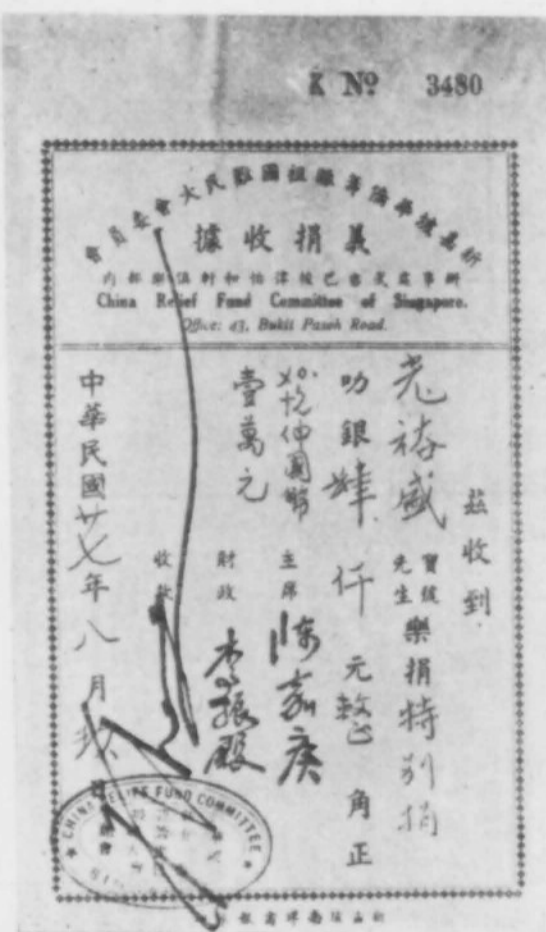 K Nº 3480
新嘉坡華僑籌賑祖國難民大會委員會
義捐收據
辦事處武吉巴梳律怡和軒俱樂部內
China Relief Fund Committee of Singapore.
Office: 43, Bukit Pasoh Road.
茲收到
寶號
先生
樂捐特別捐
叻銀肆仟元
角正
壹萬元
主席 陳嘉庚
財政 李振殿
收款
中華民國廿七年八月
CHINA RELIEF FUND COMMITTEE